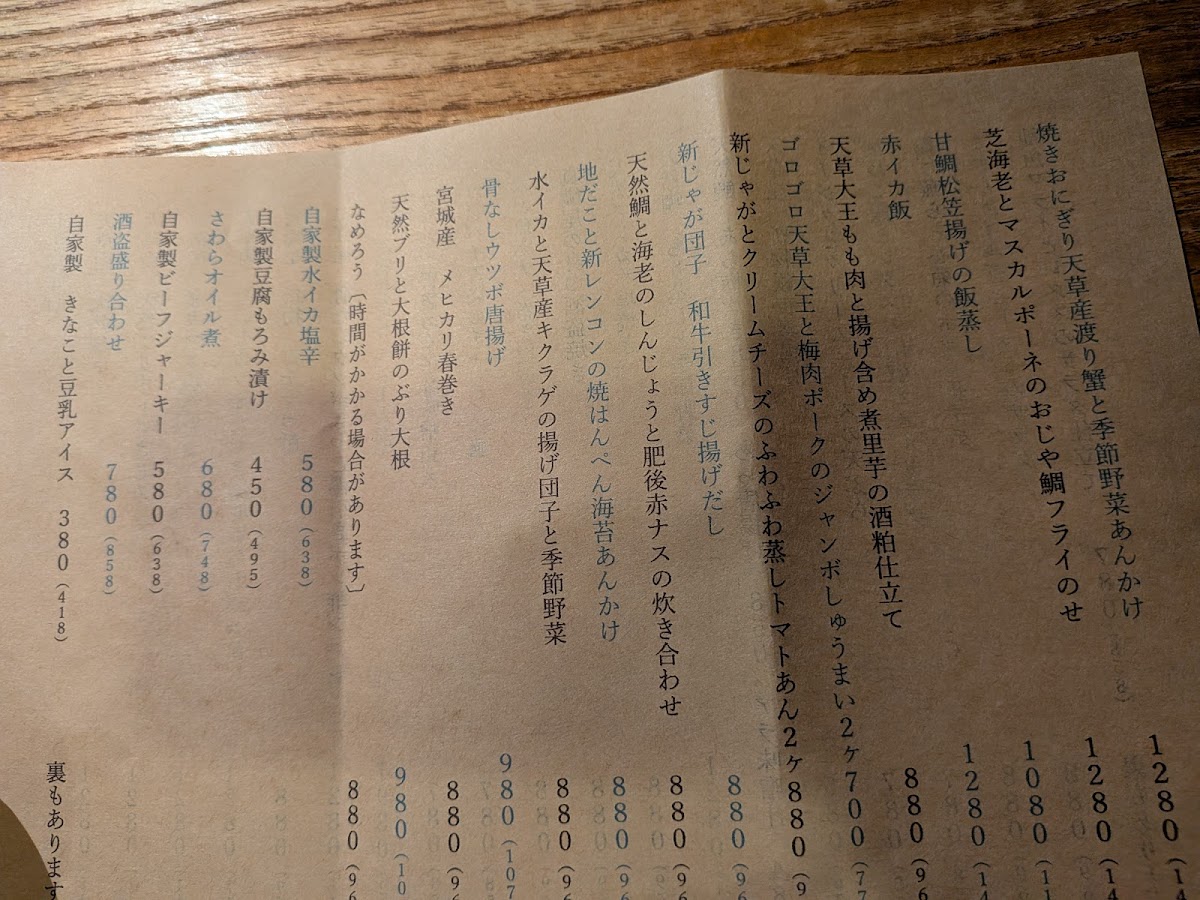 焼きおにぎり天草産渡り蟹と季節野菜あんかけ 1280（14
芝海老とマスカルポーネのおじや鯛フライのせ 1280（14
甘鯛松笠揚げの飯蒸し 1080（11
赤イカ飯 1280（14
天草大王もも肉と揚げ含め煮里芋の酒粕仕立て 880（96
ゴロゴロ天草大王と梅肉ポークのジャンボしゅうまい2ヶ 700（77
新じゃがとクリームチーズのふわふわ蒸しトマトあん2ヶ 880（9
新じゃが団子 和牛引きすじ揚げだし 880（96
天然鯛と海老のしんじょうと肥後赤ナスの炊き合わせ 880（96
地だこと新レンコンの焼はんぺん海苔あんかけ 880（96
水イカと天草産キクラゲの揚げ団子と季節野菜 880（96
骨なしウツボ唐揚げ 980（107
宮城産 メヒカリ春巻き 880（96
天然ブリと大根餅のぶり大根 980（10
なめろう〔時間がかかる場合があります〕 880（96
自家製水イカ塩辛 580（638）
自家製豆腐もろみ漬け 450（495）
さわらオイル煮 680（748）
自家製ビーフジャーキー 580（638）
酒盗盛り合わせ 780（858）
自家製 きなこと豆乳アイス 380（418）
裏もあります